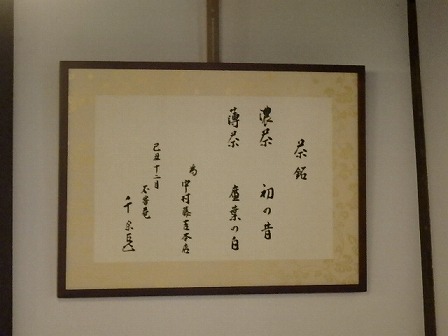 茶銘
濃茶 初の昔
薄茶 蘆葉の白
為 中村藤吉本店
己丑十二月
不昔菴
千宗